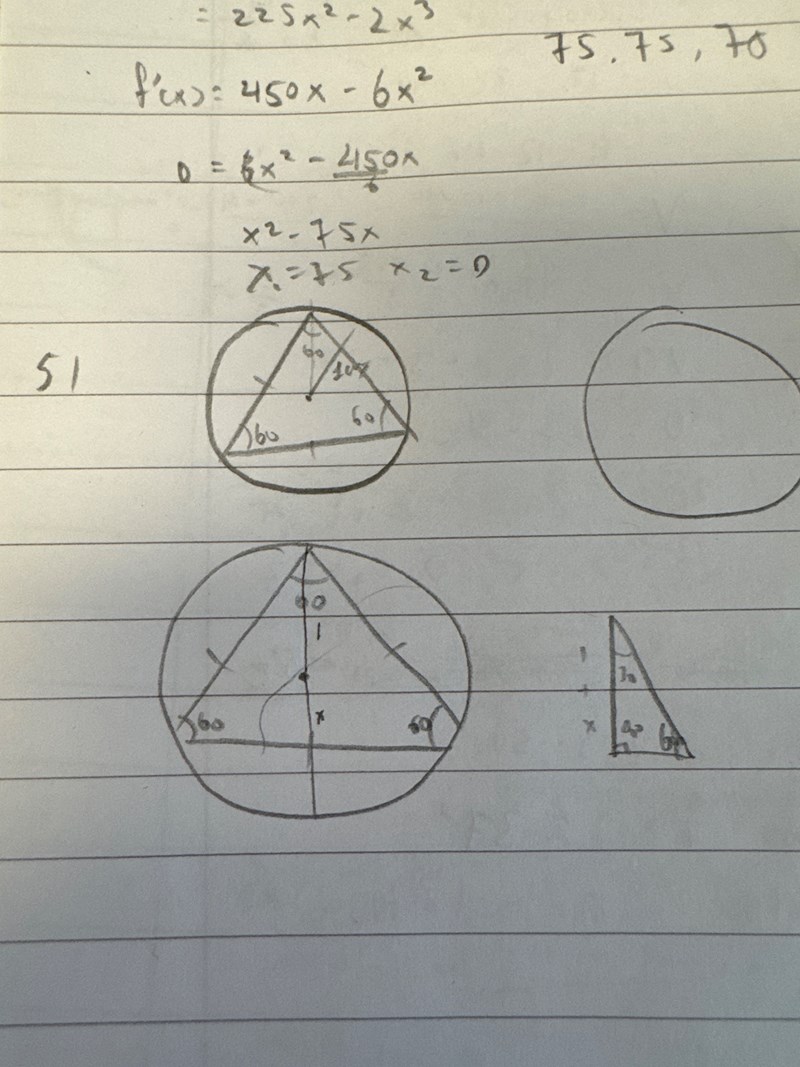 = 225x² - 2x³
75, 75, 70
f'(x) = 450x - 6x²
0 = 6x² - 450x
6
x² - 75x
x₁ = 75 x₂ = 0
51
60
60
60
60
1
x
60
60
1
+
x
30
90
60